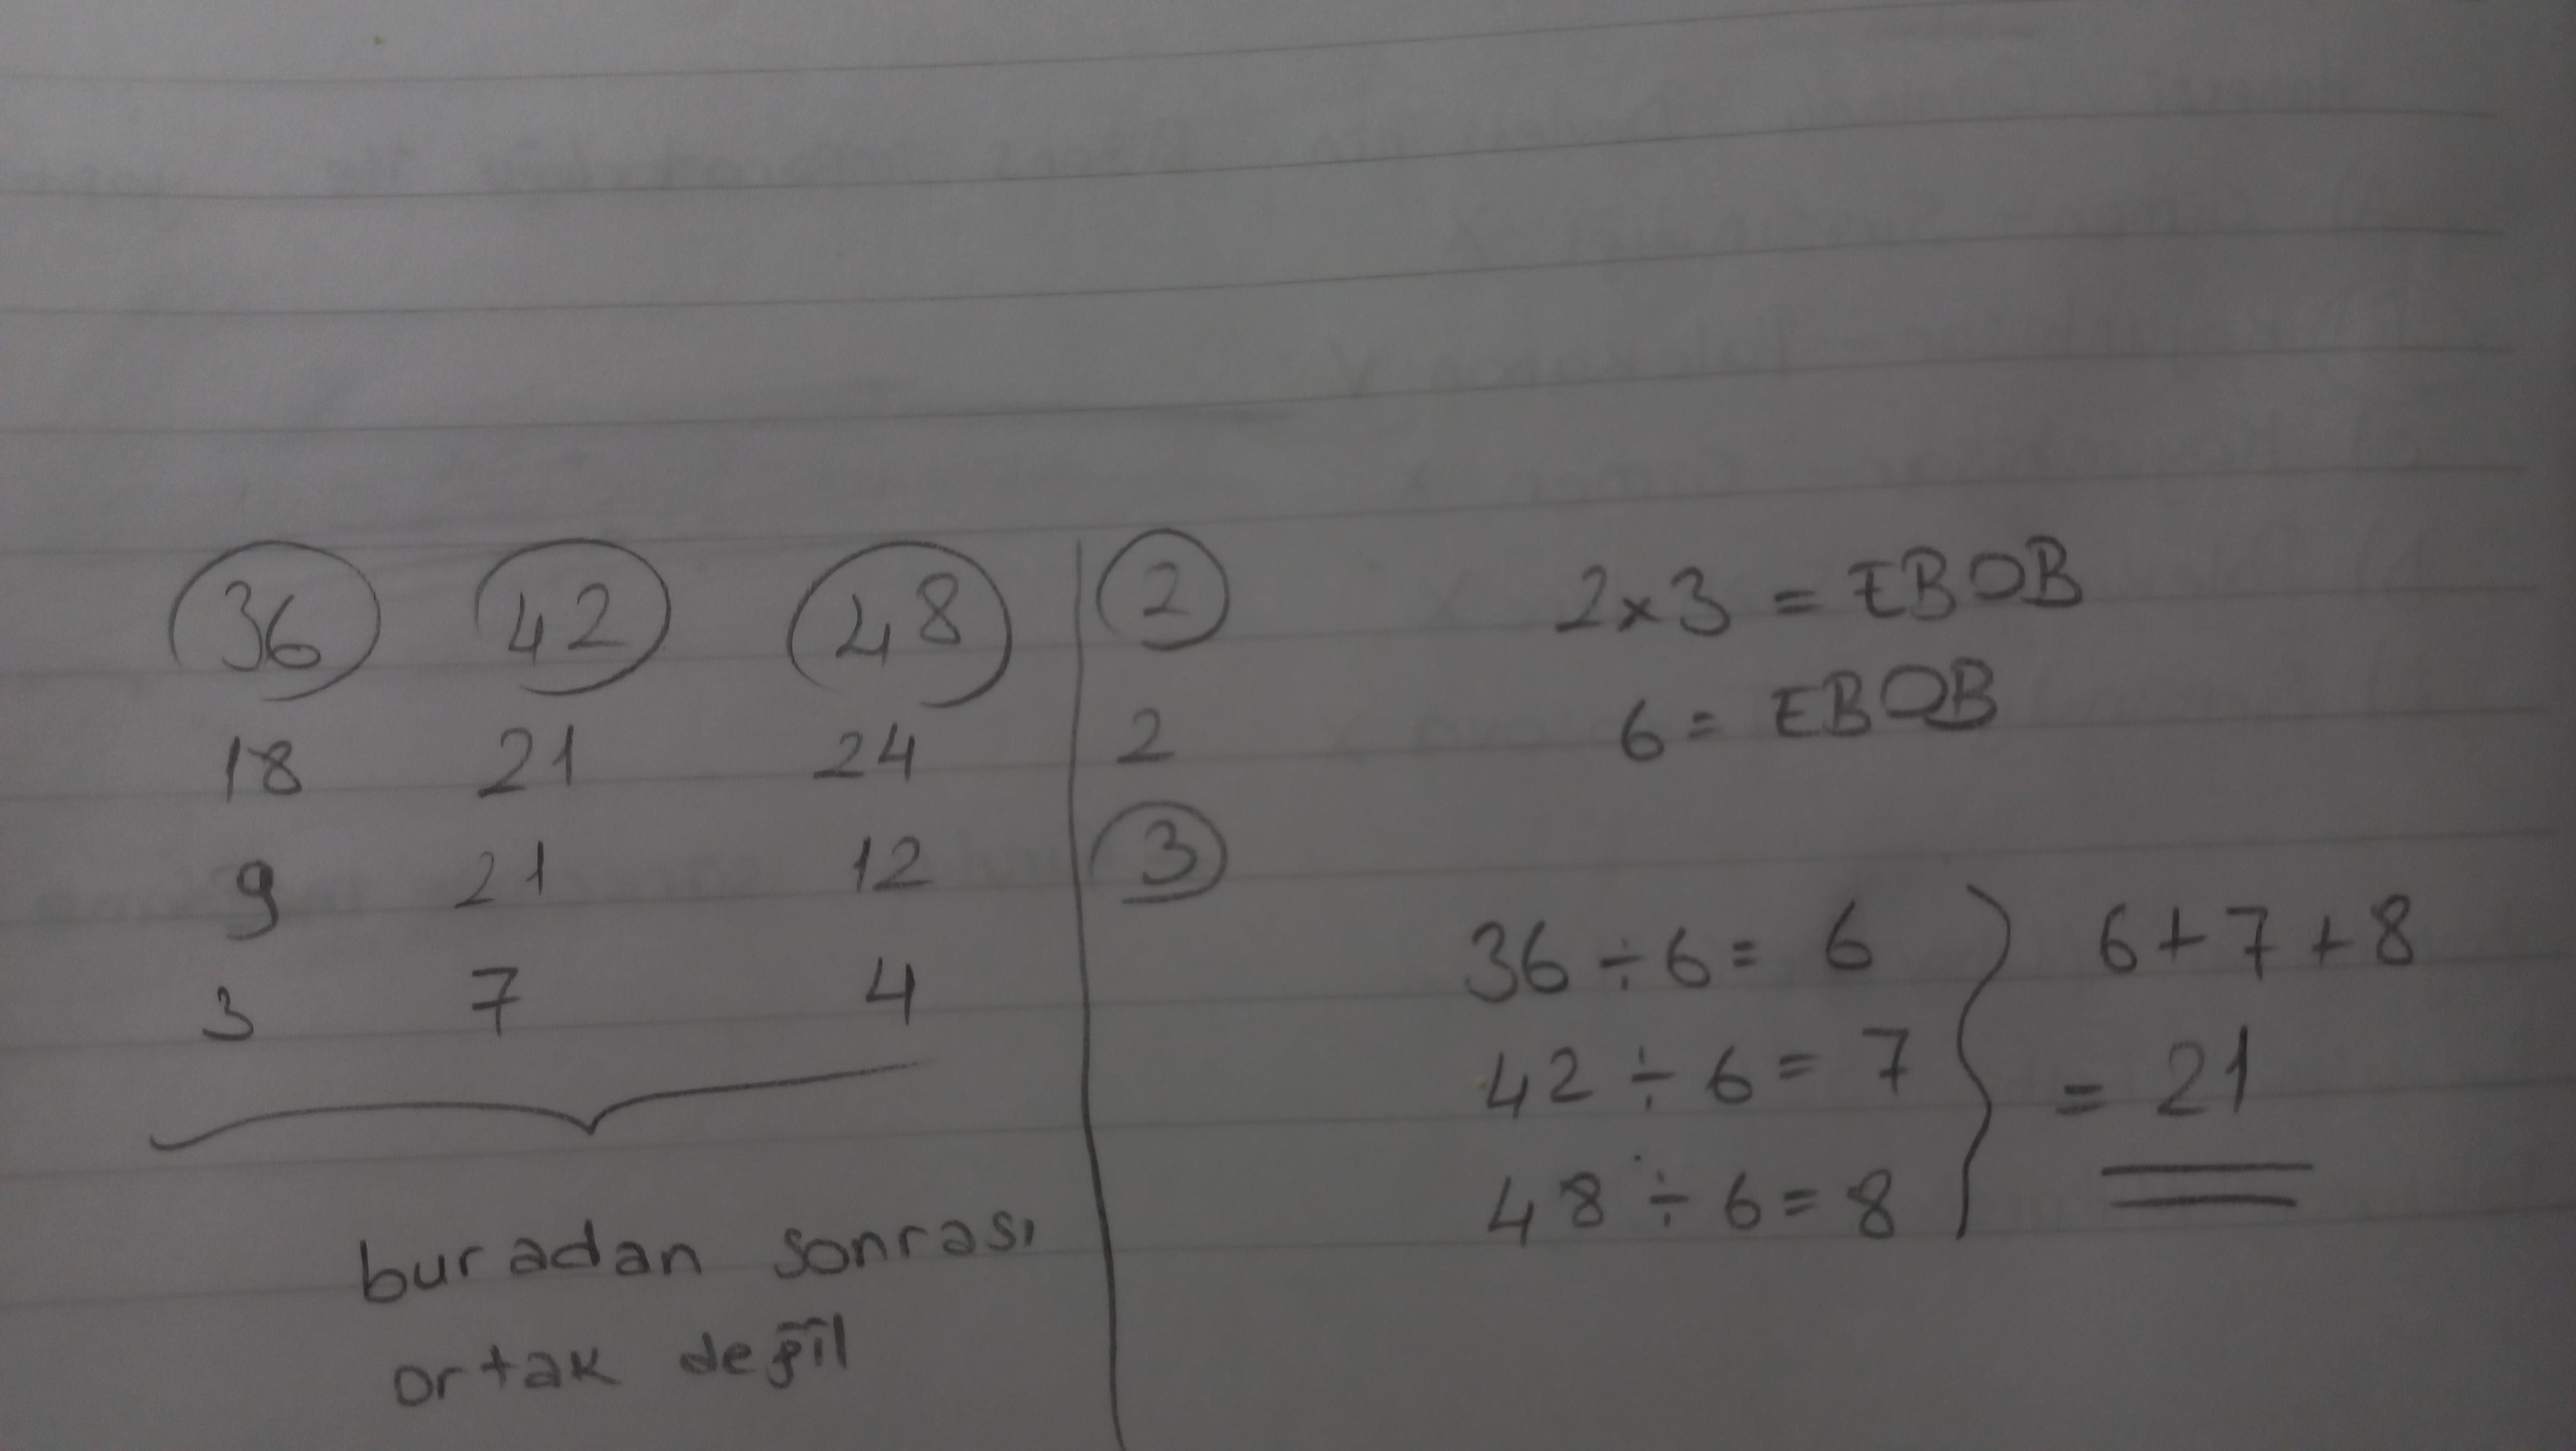 36 42 48 | 2
18 21 24 | 2
9 21 12 | 3
3 7 4
buradan sonrası
ortak değil
2x3 = EBOB
6 = EBOB
36 ÷ 6 = 6
42 ÷ 6 = 7
48 ÷ 6 = 8
6+7+8
= 21